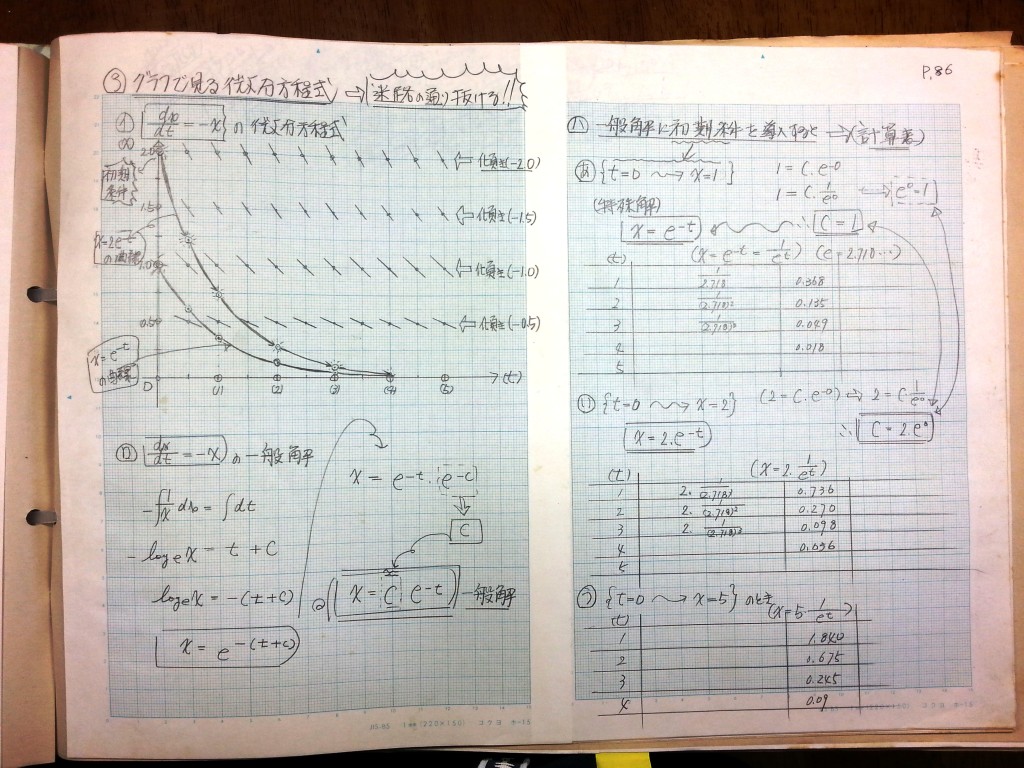 P.86
③ グラフで見る微分方程式 ⇨ 迷路の通り抜ける!!
㋑ {dx/dt = -x} の微分方程式
(x)
2.0
初期条件
⇦ 傾き(-2.0)
1.5
⇦ 傾き(-1.5)
x=2e^-t の曲線
1.0
⇦ 傾き(-1.0)
0.5
⇦ 傾き(-0.5)
x=e^-t
0 (1) (2) (3) (4) (5) → (t)
㋺ (dx/dt = -x) の一般解
-∫1/x dx = ∫dt
- log e x = t + C
log e x = -(t+c)
x = e^-(t+c)
x = e^-t · e^-c
C
x = C e^-t 一般解
㋩ 一般解に初期条件を導入すると → (計算表)
あ {t=0 〜→ x=1}
1 = C.e^-0
1 = C.1/e^0 e^0=1
(特殊解)
x = e^-t
∴ C=1
(t) (x = e^-t = 1/e^t) (e=2.718...)
1 1/2.718 0.368
2 1/(2.718)² 0.135
3 1/(2.718)³ 0.049
4 0.018
5
い {t=0 〜→ x=2} (2 = C.e^-0) ⇨ 2 = C.1/e^0
x = 2.e^-t
∴ C=2.e^0
(t) (x=2.1/e^t)
1 2. 1/(2.718) 0.736
2 2. 1/(2.718)² 0.270
3 2. 1/(2.718)³ 0.098
4 0.036
5
う {t=0 〜→ x=5} のとき
(t) (x=5·1/e^t)
1 1.840
2 0.675
3 0.245
4 0.09
1mm(220×150) コクヨ ホ-18